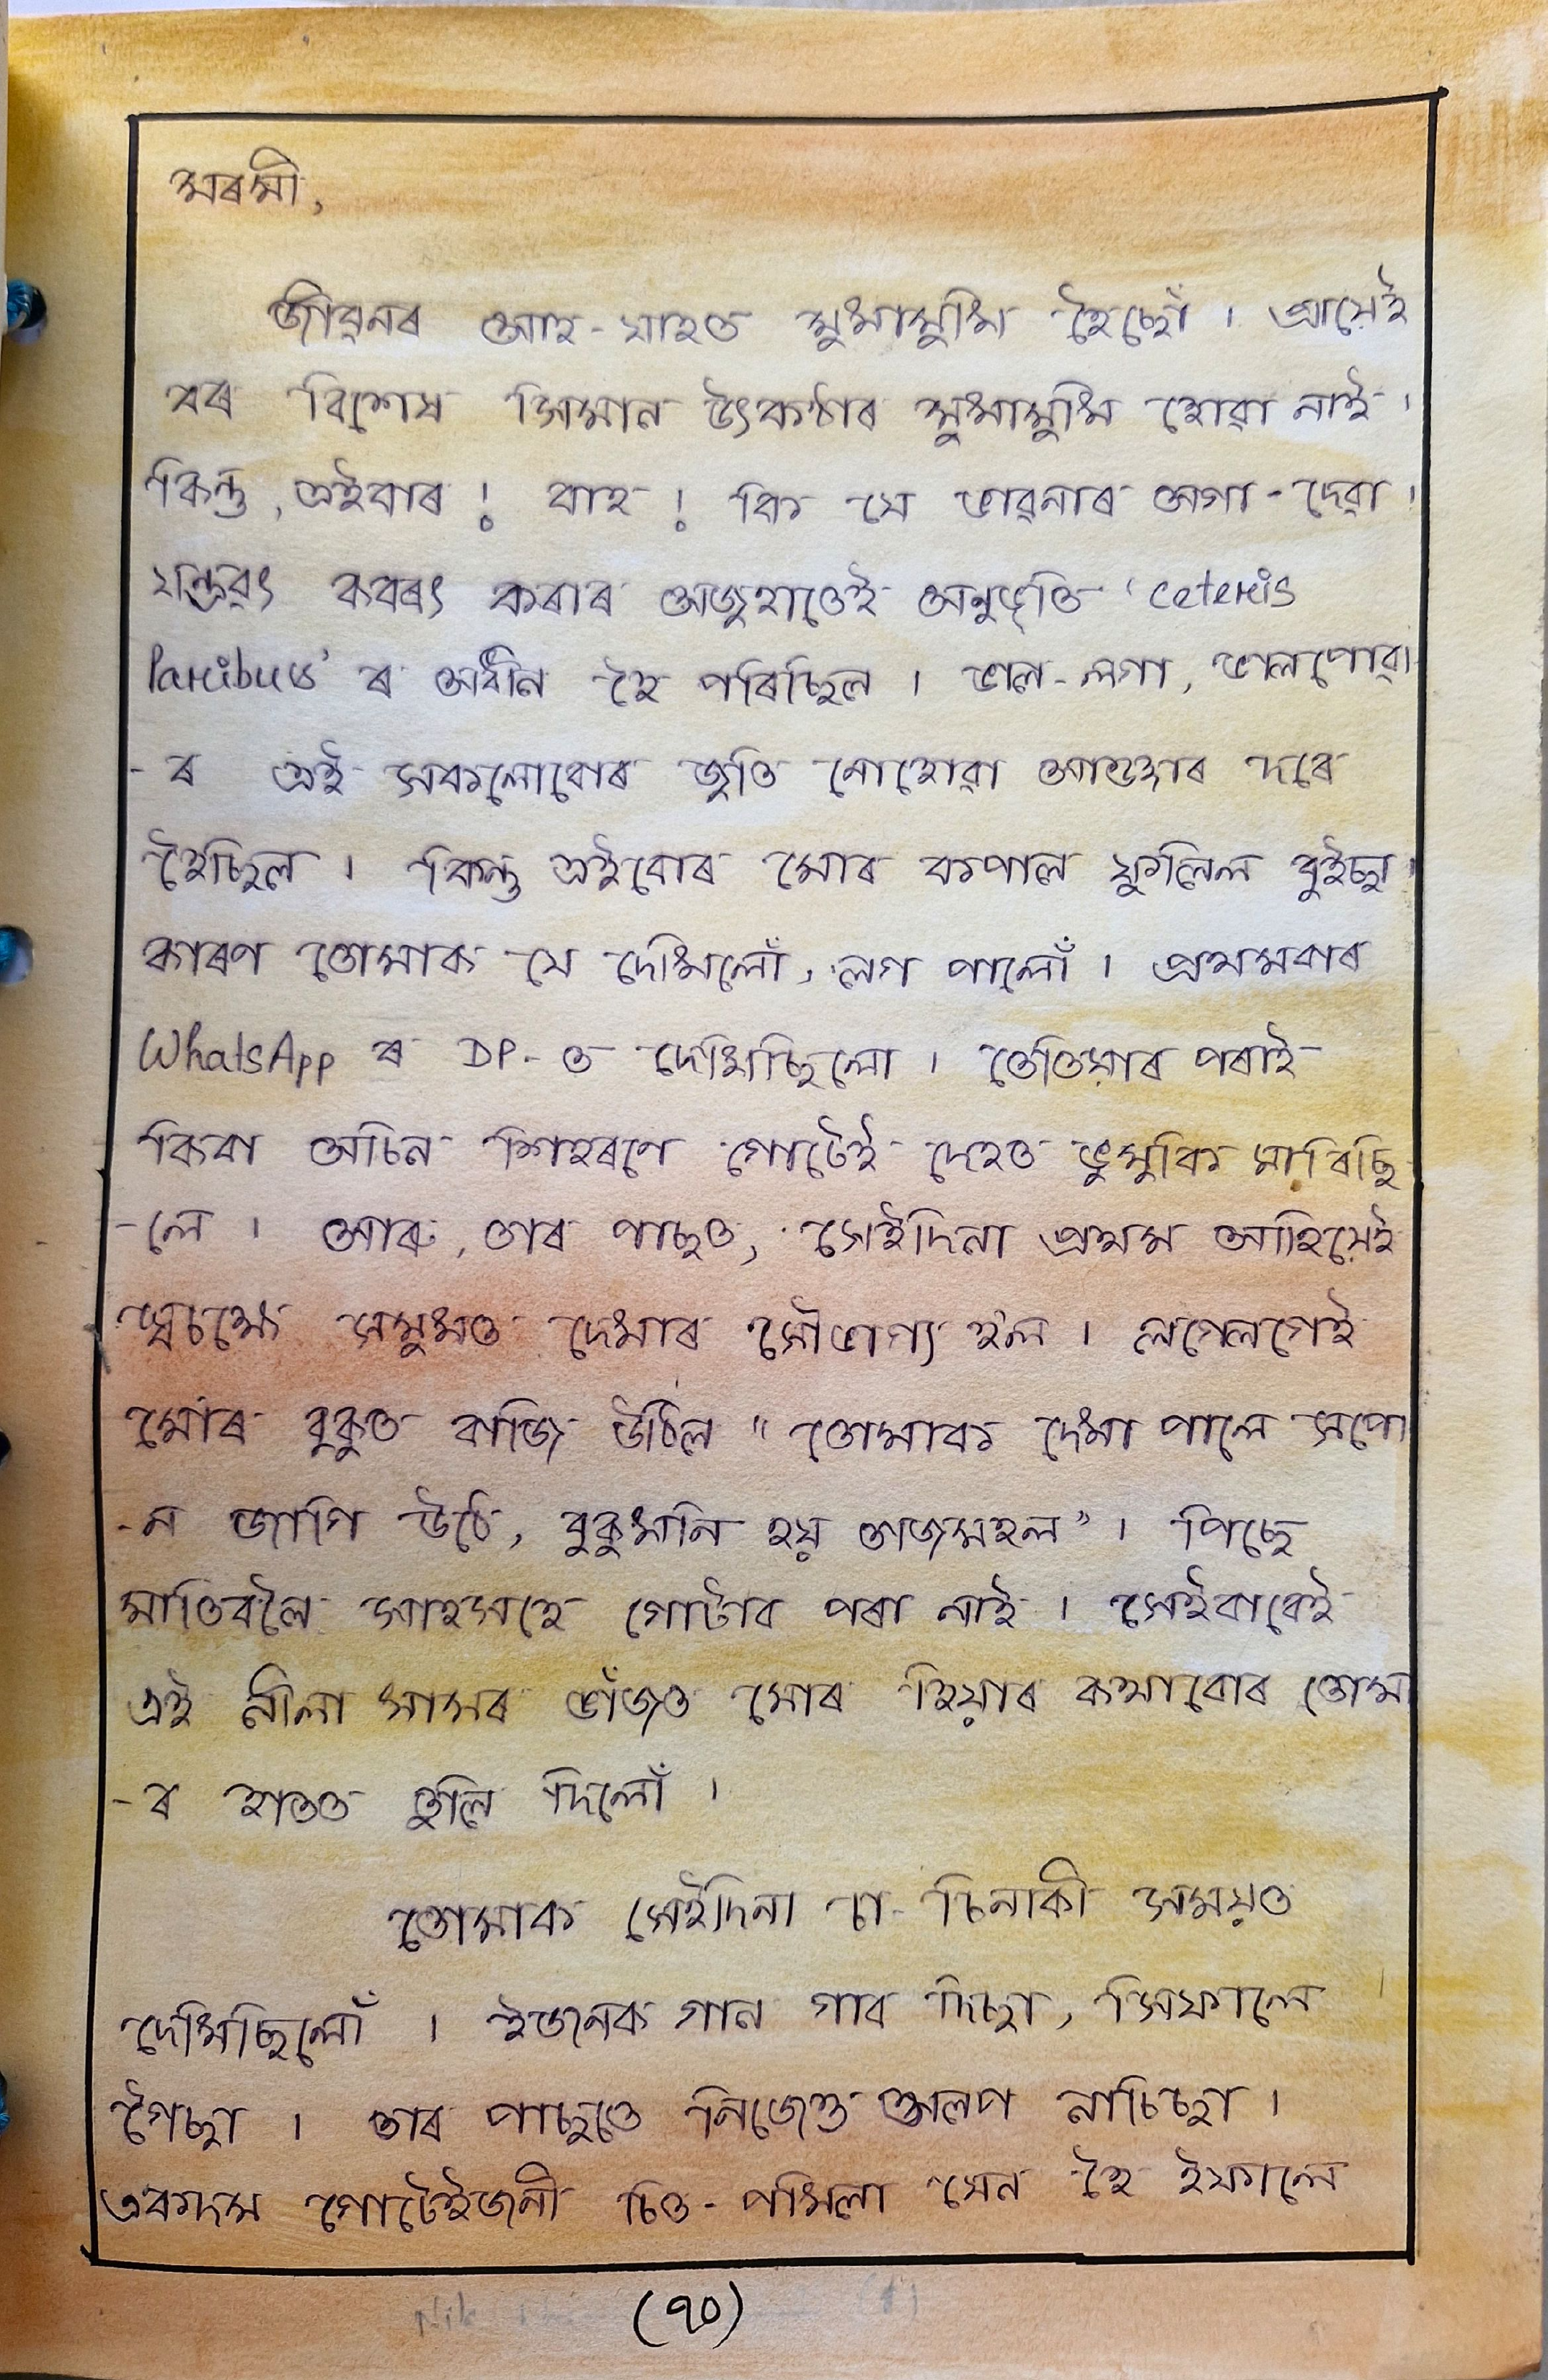 মৰমী,
জীৱনৰ আহ-যাহত মুখামুখি হৈছোঁ । প্ৰায়েই
বৰ বিশেষ সিমান উৎকণ্ঠাৰ মুখামুখি হোৱা নাই ।
কিন্তু, এইবাৰ ! বাহ ! কি যে ভাৱনাৰ অগা-দেৱা ।
যন্ত্ৰৱৎ কৰৰৎ কৰাৰ অজুহাতেই অনুভূতি 'Ceteris
Paribus' ৰ অধীন হৈ পৰিছিল । ভাল-লগা, ভালপোৱা
-ৰ এই সকলোবোৰ জুতি নোহোৱা আঙুাৰ দৰে
হৈছিল । কিন্তু এইবোৰ মোৰ কপাল ফুলিল বুইছা ।
কাৰণ তোমাক যে দেখিলোঁ, লগ পালোঁ । প্ৰথমবাৰ
WhatsApp ৰ DP-ত দেখিছিলো । তেতিয়াৰ পৰাই
কিবা অচিন শিহৰণে গোটেই দেহত ভুমুকি মাৰিছি
-লে । আৰু, তাৰ পাছত, সেইদিনা প্ৰথম আহিয়েই
স্বচক্ষে সমুখত দেখাৰ সৌভাগ্য হ'ল । লগেলগেই
মোৰ বুকুত বাজি উঠিল "তোমাক দেখা পালে সপো
-ন জাগি উঠে, বুকুখনি হয় তাজমহল" । পিছে
মাতিবলৈ সাহসহে গোটাব পৰা নাই । সেইবাবেই
এই নীলা খামৰ ভাঁজত মোৰ হিয়াৰ কথাবোৰ তোমা
-ৰ হাতত তুলি দিলোঁ ।
তোমাক সেইদিনা চা-চিনাকী সময়ত
দেখিছিলোঁ । ইজনক গান গাব দিছা, সিফালে
গৈছা । তাৰ পাছতে নিজেও অলপ নাচিছা ।
একদম গোটেইজনী চিত-পখিলা যেন হৈ ইফালে
(৭০)